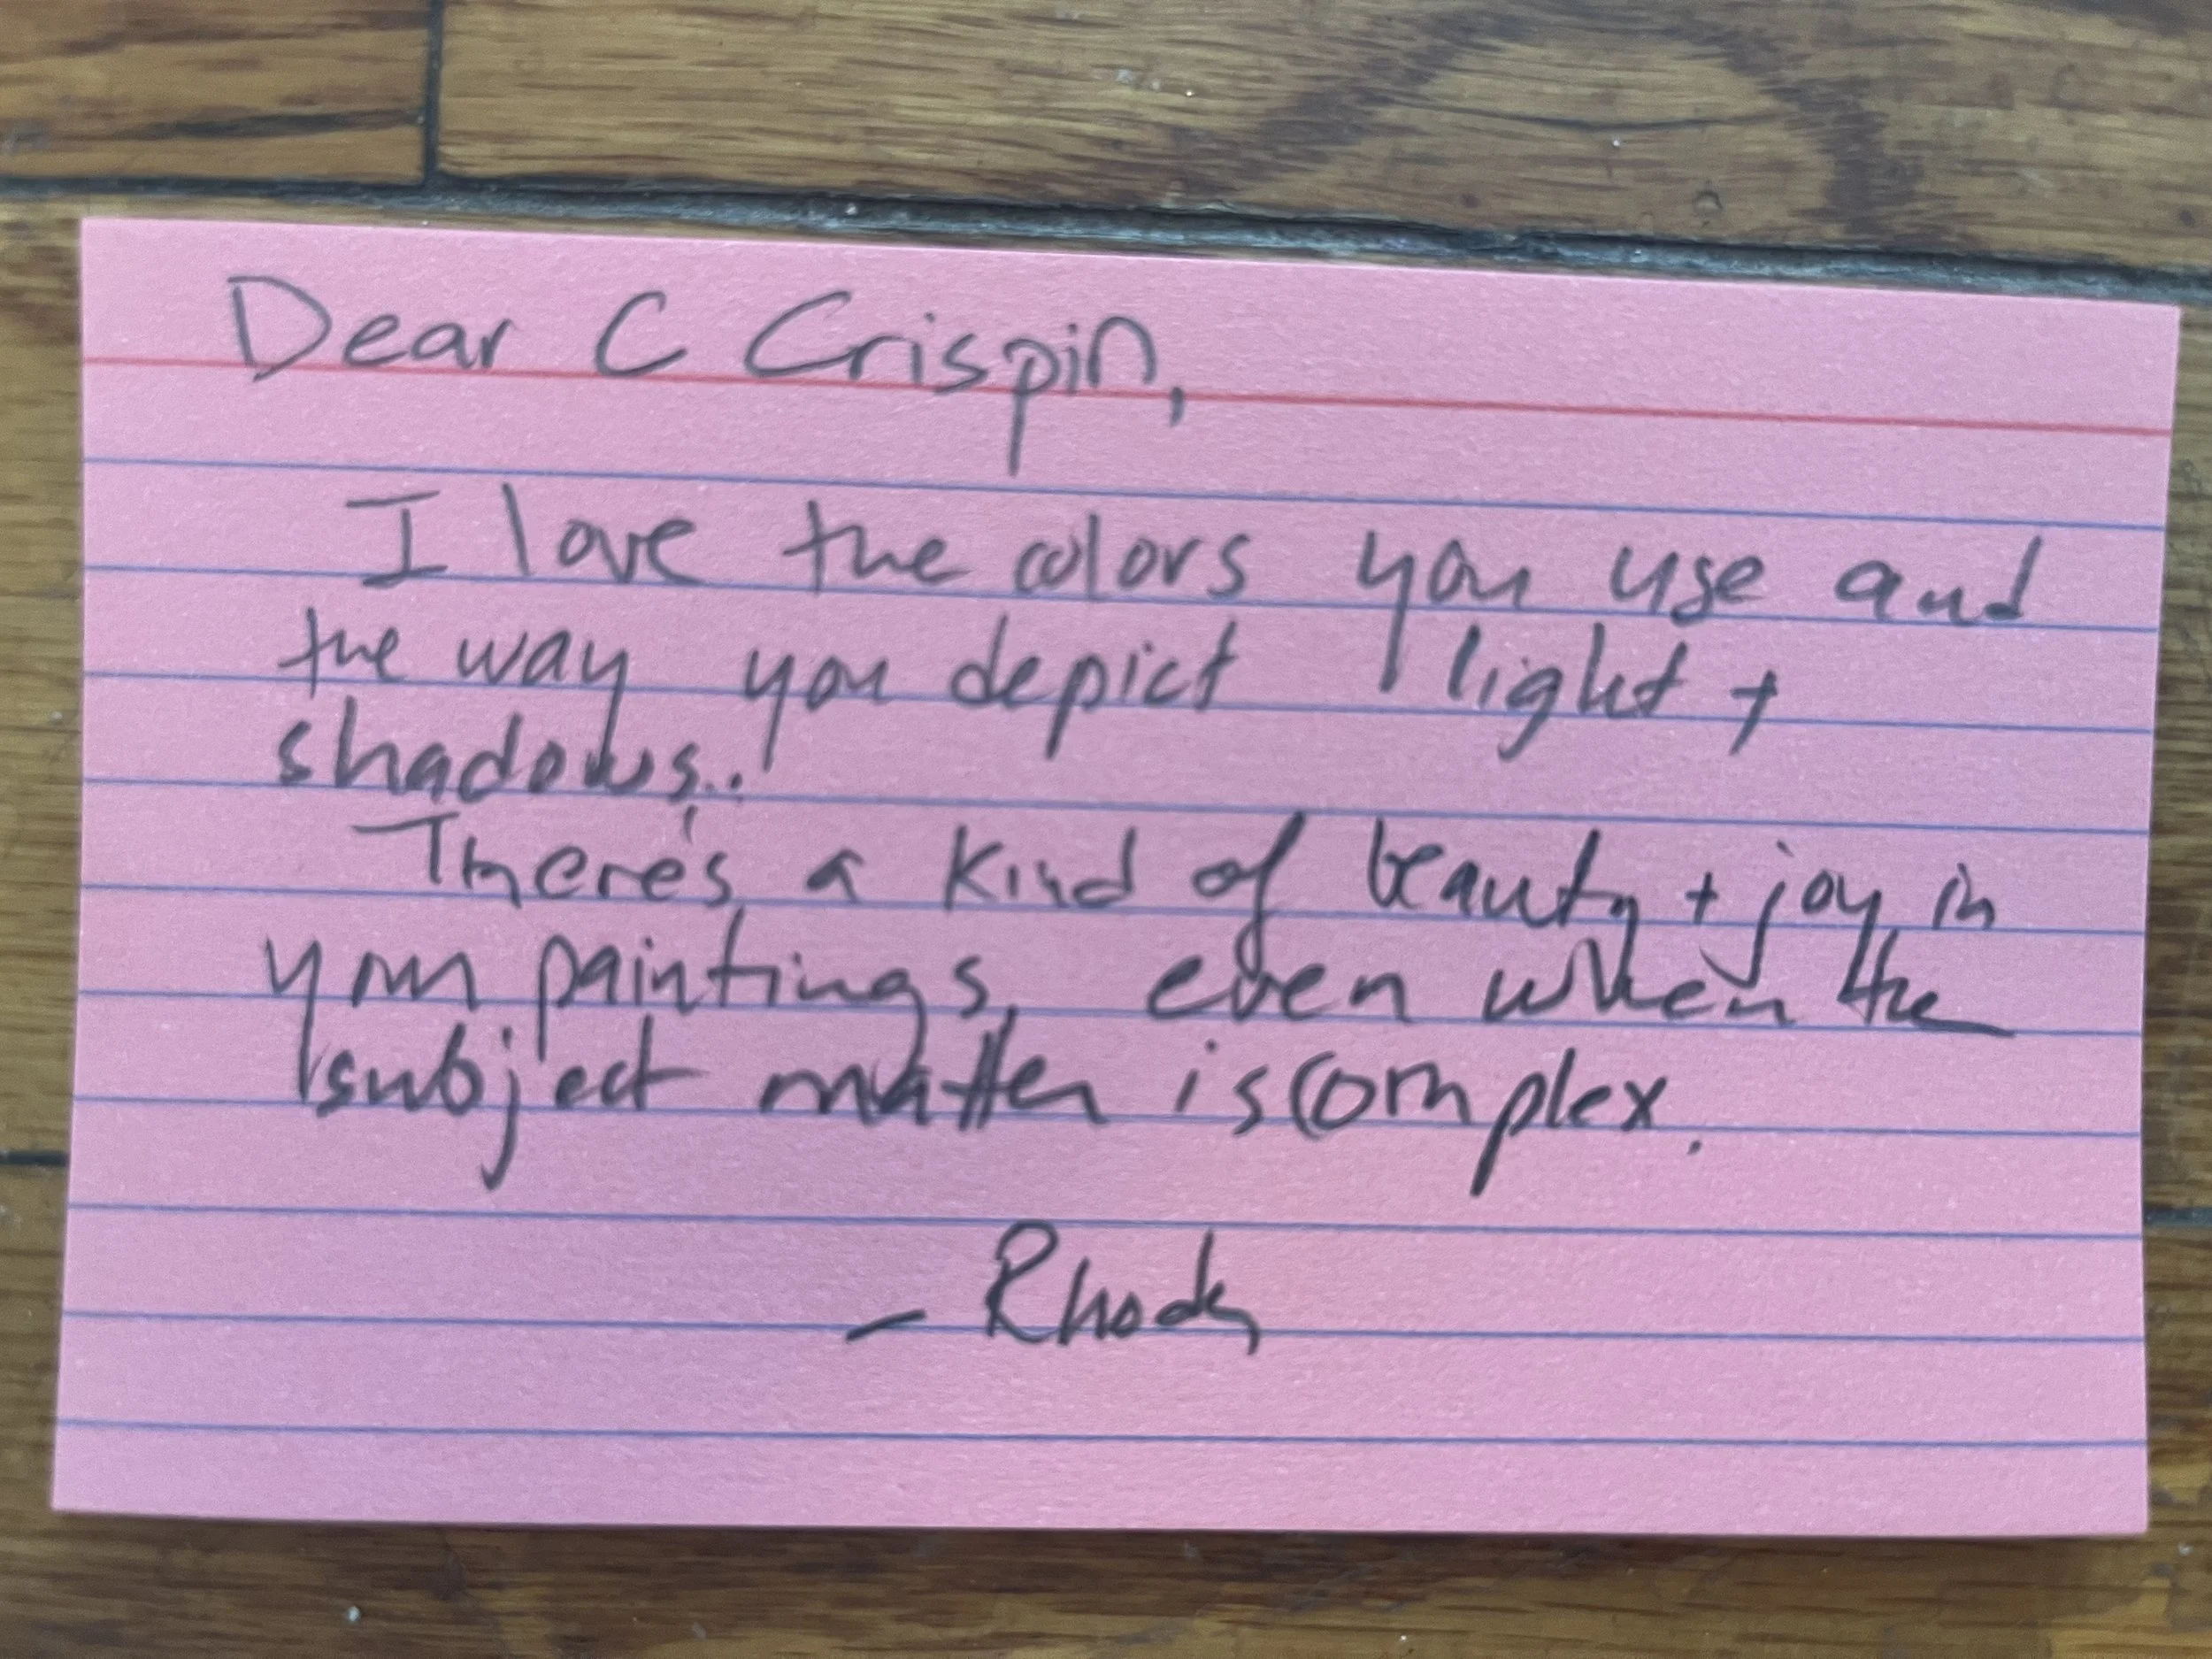 Dear C Crispin,
I love the colors you use and
the way you depict light +
shadows..
There's a kind of beauty + joy in
your paintings, even when the
subject matter is complex.
- Rhody